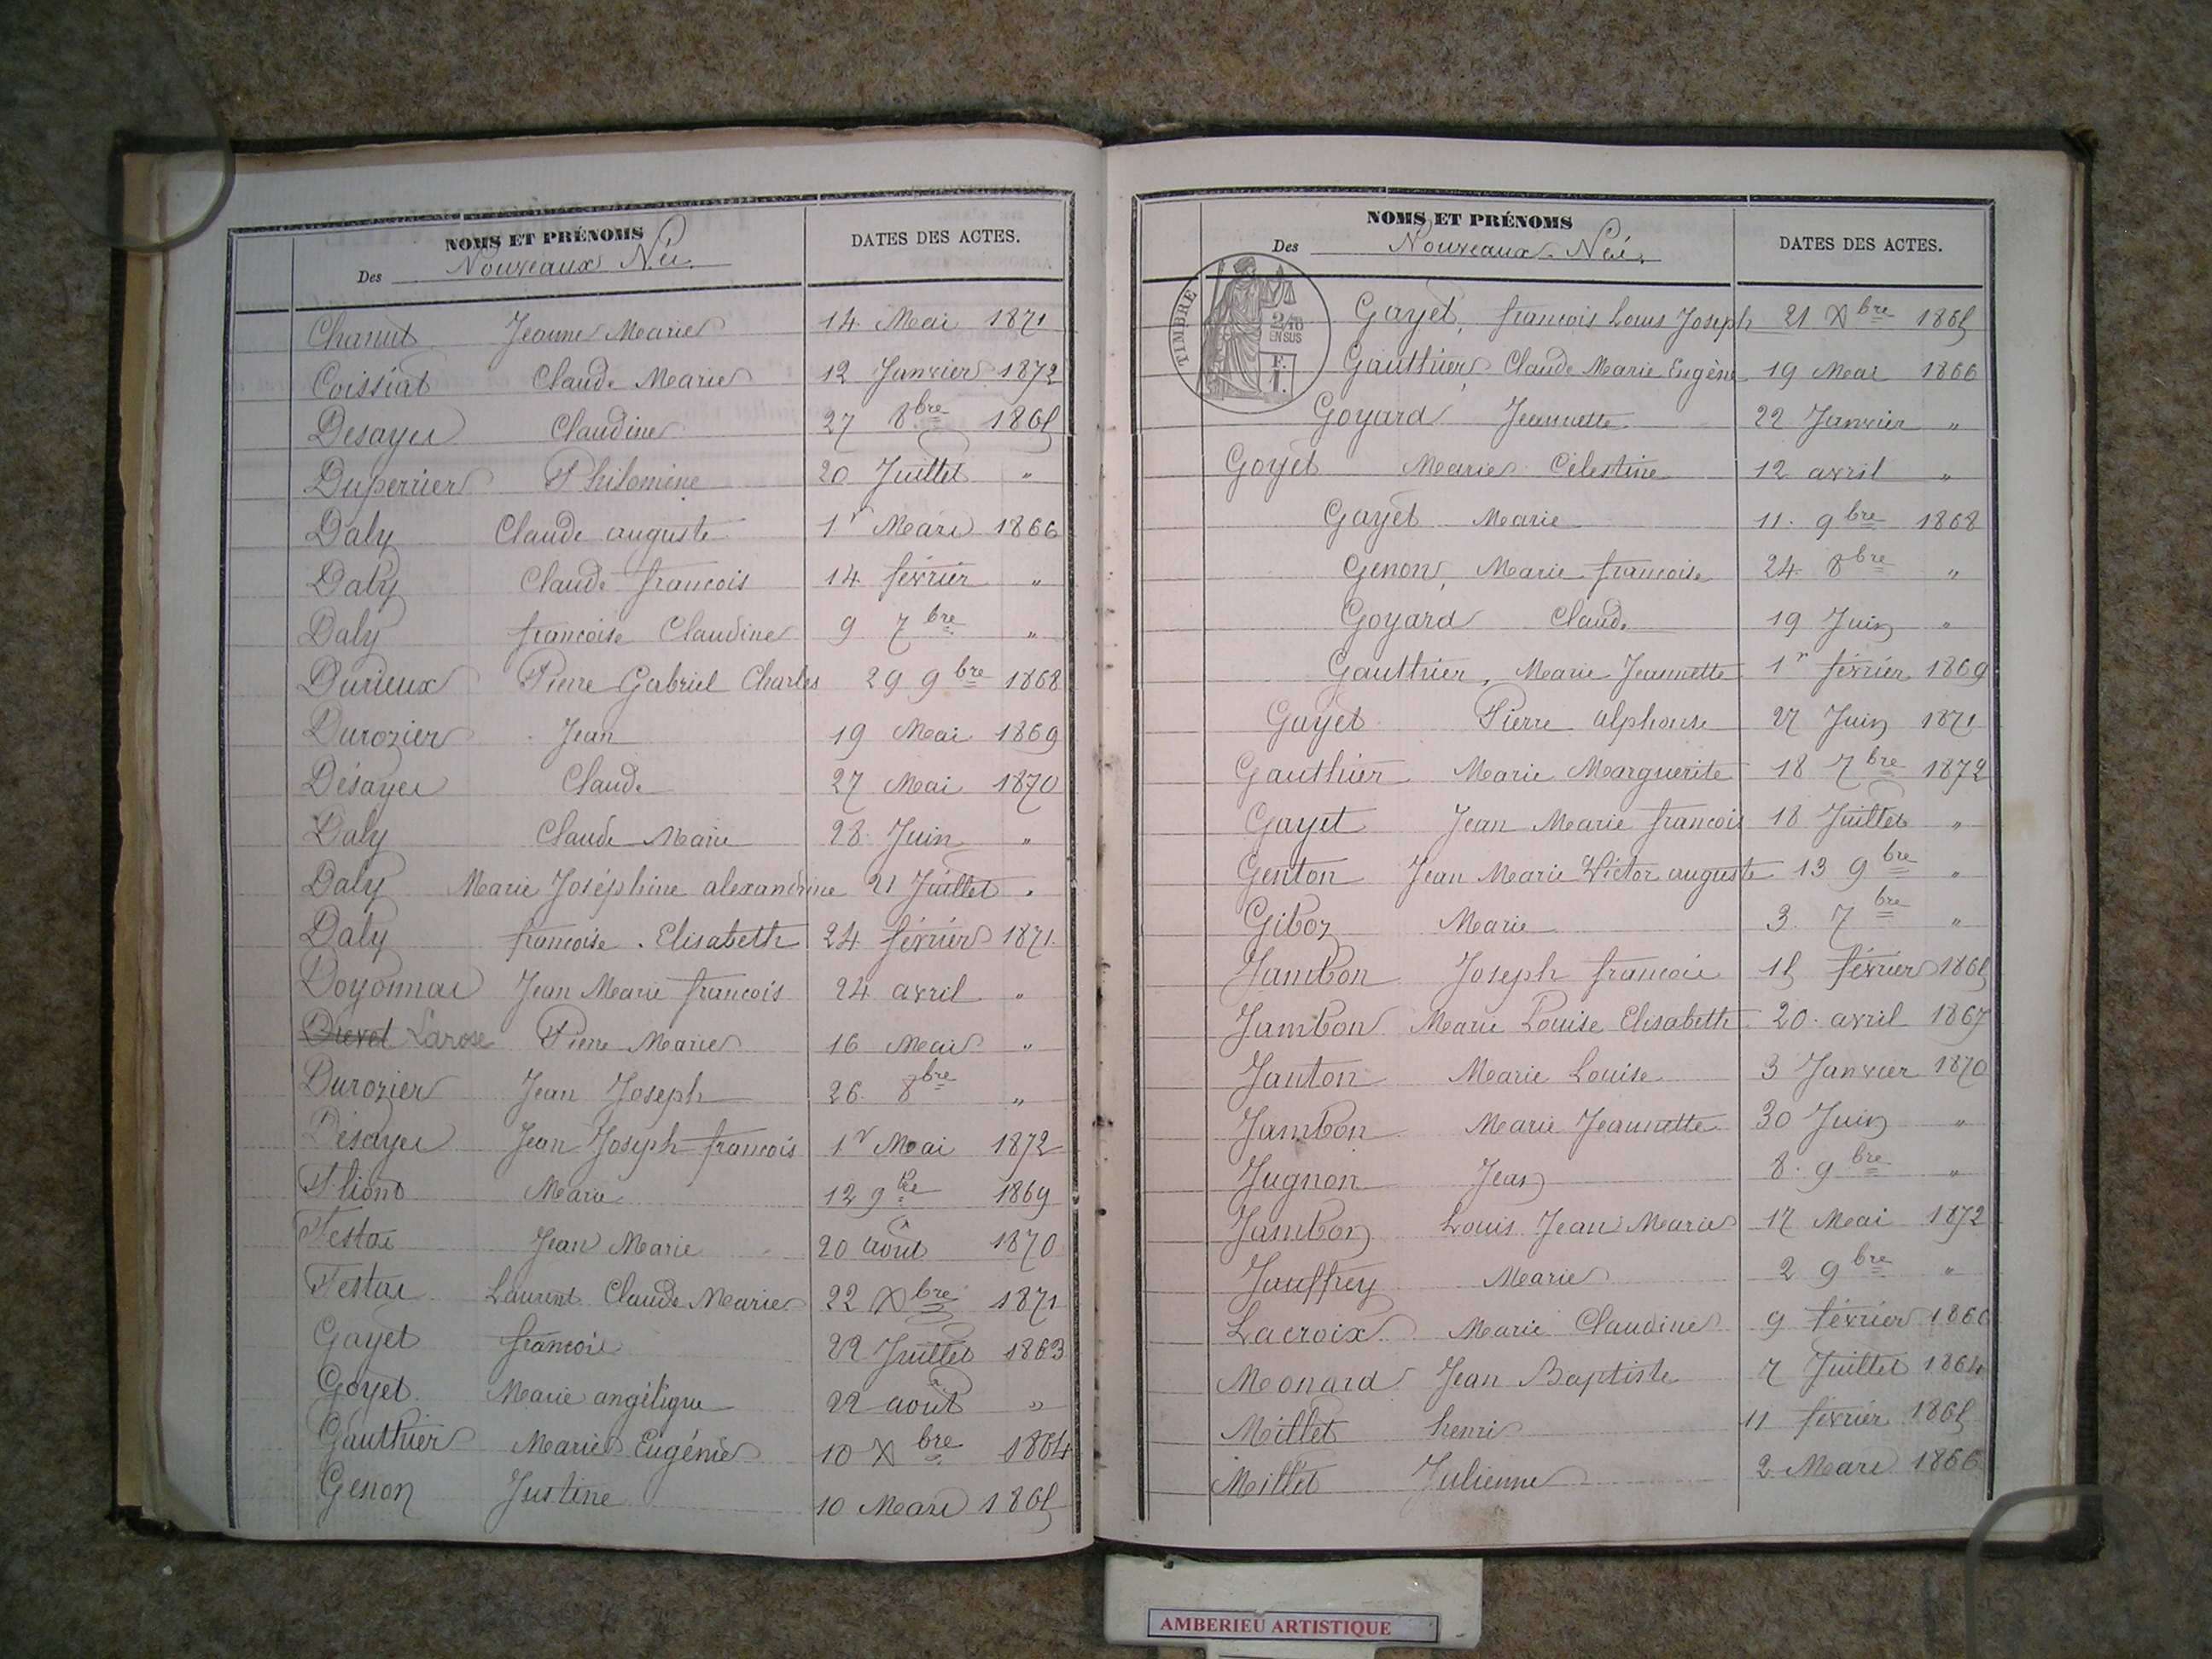 NOMS ET PRÉNOMS
Des Nouveaux Nés.
DATES DES ACTES.
Chanut Jeanne Marie 14 Mai 1871
Coissiat Claude Marie 12 Janvier 1872
Desayes Claudine 27 8bre 1865
Duperrier Philomine 20 Juillet "
Daly Claude auguste 1r Mars 1866
Daly Claude francois 14 février "
Daly francoise Claudine 9 7bre "
Durieux Pierre Gabriel Charles 29 9bre 1868
Durozier Jean 19 Mai 1869
Désayes Claude 27 Mai 1870
Daly Claude Marie 28 Juin "
Daly Marie Joséphine alexandrine 21 Juillet "
Daly francoise Elisabeth 24 février 1871
Doyonnas Jean Marie francois 24 avril "
Drevet Larose Pierre Marie 16 Mai "
Durozier Jean Joseph 26 8bre "
Désayes Jean Joseph francois 1r Mai 1872
Marie 12 9bre 1869
Festas Jean Marie 20 août 1870
Festas Laurent Claude Marie 22 Xbre 1871
Gayet francois 22 Juillet 1863
Goyet Marie angélique 22 août "
Gauthier Marie Eugénie 10 Xbre 1864
Genon Justine 10 Mars 1865
NOMS ET PRÉNOMS
Des Nouveaux-Nés.
DATES DES ACTES.
TIMBRE
2/10
EN SUS
F.
1.
Gayet, francois Louis Joseph 21 Xbre 1865
Gauthier, Claude Marie Eugène 19 Mai 1866
Goyard Jeannette 22 Janvier "
Goyet Marie Célestine 12 avril "
Gayet Marie 11 9bre 1868
Genon, Marie francoise 24 8bre "
Goyard Claude 19 Juin "
Gauthier, Marie Jeannette 1r février 1869
Gayet Pierre alphonse 27 Juin 1871
Gauthier Marie Marguerite 18 7bre 1872
Gayet Jean Marie francois 18 Juillet "
Genton Jean Marie Victor auguste 13 9bre "
Giboz Marie 3 7bre "
Jambon Joseph francois 15 février 1865
Jambon Marie Louise Elisabeth 20 avril 1867
Janton Marie Louise 3 Janvier 1870
Jambon Marie Jeannette 30 Juin "
Jugnon Jean 8 9bre "
Jambon Louis Jean Marie 17 Mai 1872
Jauffrey Marie 2 9bre "
Lacroix Marie Claudine 9 février 1866
Monard Jean Baptiste 7 Juillet 1864
Millet henri 11 février 1865
Millet Julienne 2 Mars 1866
AMBERIEU ARTISTIQUE